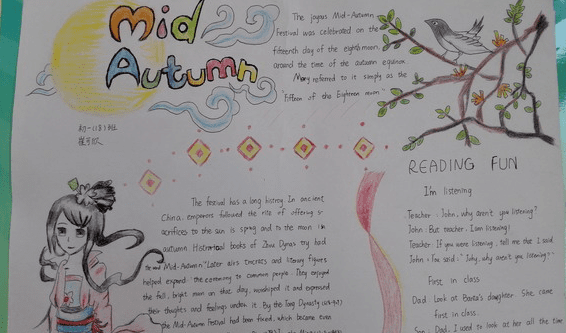 Mid
Autumn
The joyous Mid-Autumn
Festival was celebrated on the
fifteenth day of the eighth moon,
around the time of the autumn equinox.
Many referred to it simply as the
"Fifteen of the Eighteen moon."
初一(1)班
READING FUN
I'm listening
Teacher: John, why aren't you listening?
John: But teacher, I am listening!
Teacher: If you were listening, tell me that I said
John: You said: "John, why aren't you listening?"
First in class
Dad: Look at daughter. She came
first in class.
Son: Dad, I used to look at her all the time
The festival has a long history. In ancient
China, emperors followed the rite of offering
sacrifices to the sun is spring and to the moon in
autumn. Historical books of Zhou Dynas try had
the word "Mid-Autumn". Later and literary figures
helped expand the ceremony to common people. They enjoyed
the full, bright moon on that day, worshiped it and expressed
their thoughts and feelings under it. By the Tang Dynasty
the Mid-Autumn Festival had been fixed, which became even